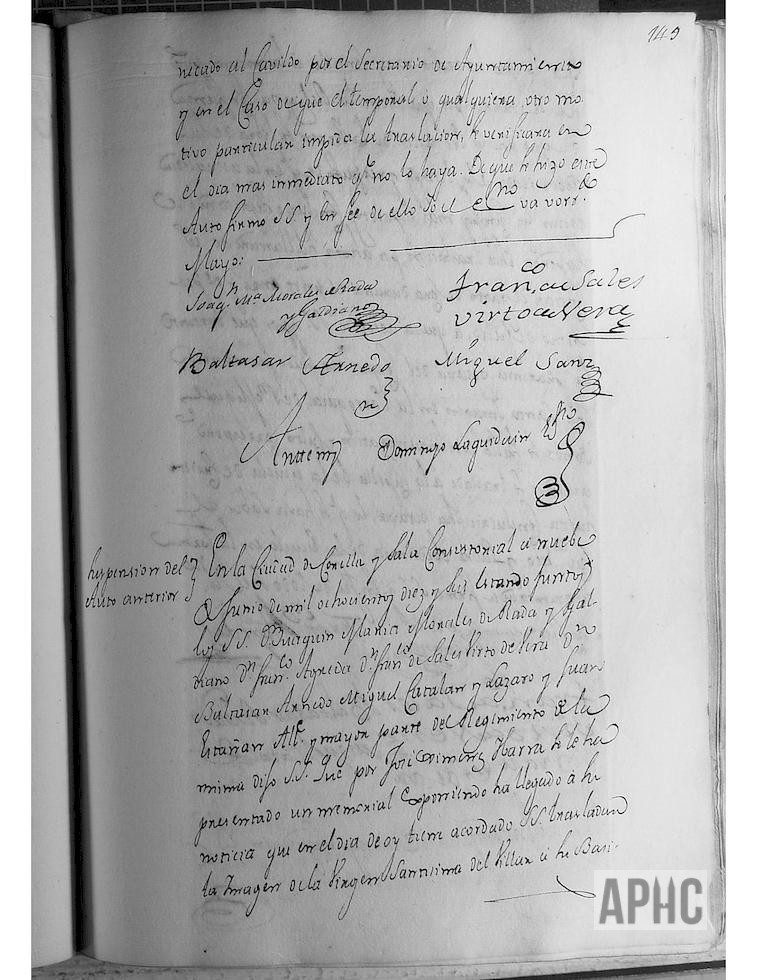 149
nicado al Cavildo por el Secretario de Ayuntamiento
y en el Caso de que el temporal o qualquiera otro mo
tivo particular impida la traslacion, se verificara en
el dia mas inmediato qe. no lo haya. De que se hizo este
Auto firmo SS. y en fee de ello Yo el esno va vorr.do
Mayo:
Joaqn. Ma. Morales de Rada
y Galdiano
Franco. de Sales
Virto de Vera
Baltasar Arnedo
Miguel Sanz
Antemi Domingo Laquidain Esno
Suspension del
Auto anterior
En la Ciudad de Corella y Sala Consistorial a nuebe
de Junio de mil ochocientos diez y seis Estando juntos
los SS. Dn. Juaquin Maria Morales de Rada y Gal
diano Dn. Franco. Agreda Dn. Franco. de Sales Virto de Vera Dn
Baltasar Arnedo Miguel Catalan y Lazaro y Juan
Estañan Alc. y mayor parte del Regimiento de la
misma dijo SS. Que por Josè Ximenez Ibarra se le ha
presentado un memorial Exponiendo ha llegado à su
noticia que en el dia de oy tiene acordado SS. trasladar
la Imagen de la Virgen Santisima del Villar a su Basi-
APHC